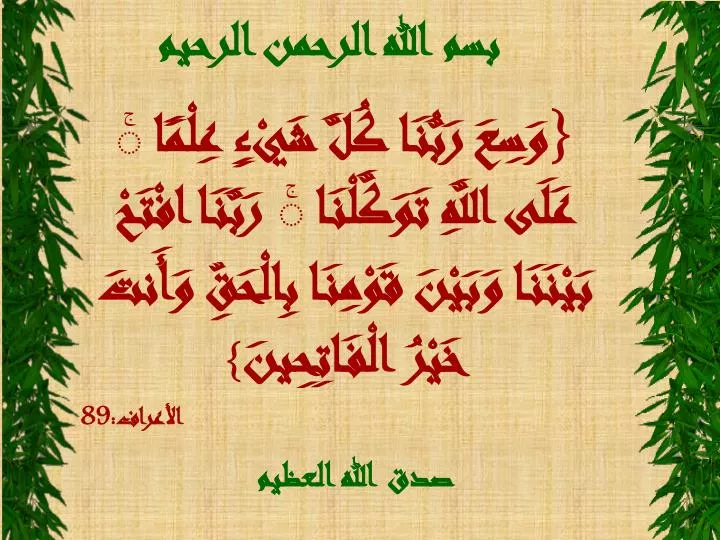 بسم الله الرحمن الرحيم
{وَسِعَ رَبُّنَا كُلَّ شَيْءٍ عِلْمًا ۚ
عَلَى اللَّهِ تَوَكَّلْنَا ۚ رَبَّنَا افْتَحْ
بَيْنَنَا وَبَيْنَ قَوْمِنَا بِالْحَقِّ وَأَنتَ
خَيْرُ الْفَاتِحِينَ}
الأعراف:89
صدق الله العظيم